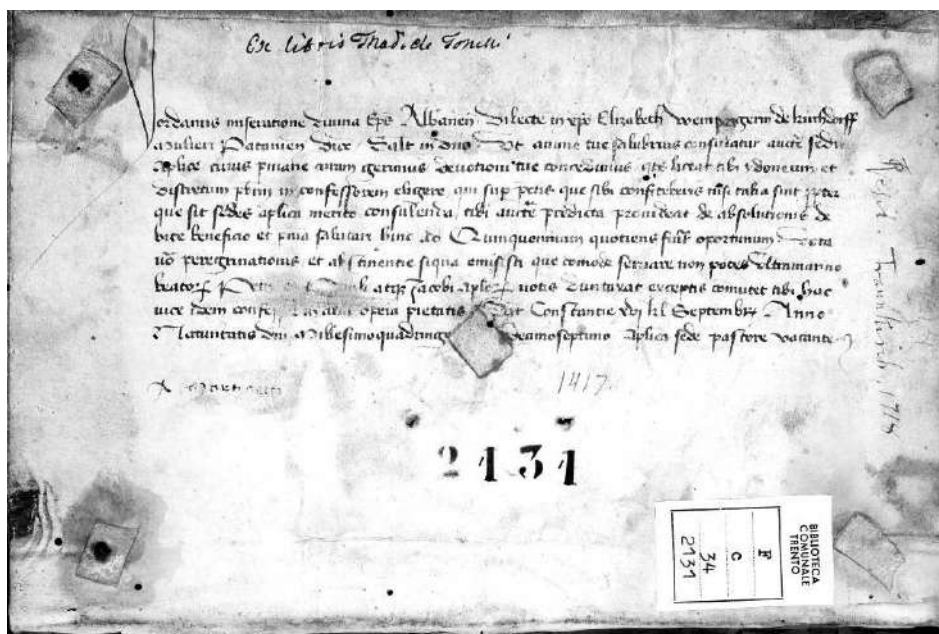 Ex libris Thad. de Tonelli
Jordanus miseratione divina Eps Albanen Dilecte in xpo Elizabeth de kirchdorff
Mulieri Patavien Dioc Salt in dno Ut anime tue salubrius consulatur aucte sedis
aplice cuius pmarie curam gerimus devotioni tue concedimus qts liceat tibi ydoneum et
discretum pbrm in confessorem eligere qui sup pctis que sibi confiteberis nisi talia sint ppter
que sit sedes aplica merito consulenda tibi aucte predicta provideat de absolutionis de
bite beneficio et pnia salutari hinc ad Quinquennium quotiens fuit oportunum Vota
vo peregrinationis et abstinentie siqua emisisti que comode servare non potes Ultramarino
beator Petri et Pauli atqz Jacobi aplor votis duntaxat exceptis comutet tibi hac
vice idem confessor in alia opera pietatis Dat Constantie kl Septembr Anno
Nativitatis dni Millesimoquadringe decimoseptimo aplica sede pastore vacante
1417
2131
BIBLIOTECA
COMUNALE
TRENTO
F
C
34
2131